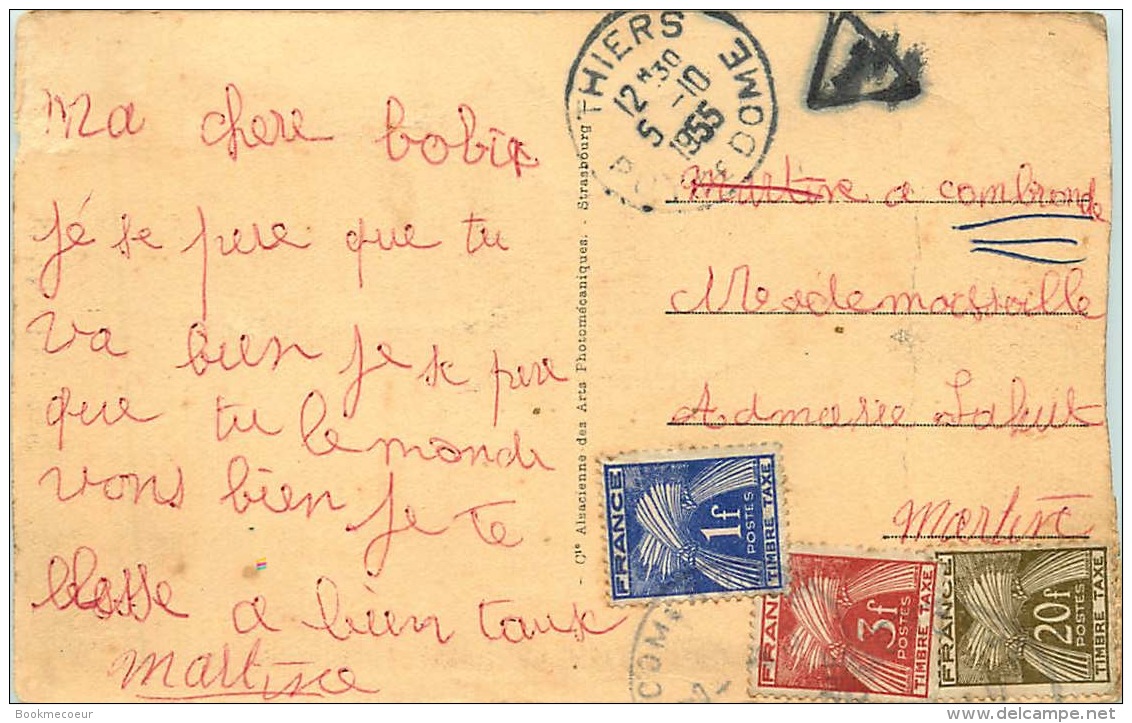 Ma chere bobi
jé se pere que tu
va bien je se pere
que tu le monde
vons bien je te
blesse a bien taux
Martine
Cie Alsacienne des Arts Photomécaniques. - Strasbourg
THIERS
12 H 30
5 - 10
1955
PUY DE DOME
Martine a combronde
Mademoiselle
Admarie
Martine
FRANCE
1f
POSTES
TIMBRE TAXE
FRANCE
3f
POSTES
TIMBRE TAXE
FRANCE
20f
POSTES
TIMBRE TAXE
COM
Bookmecoeur
www.delcampe.net